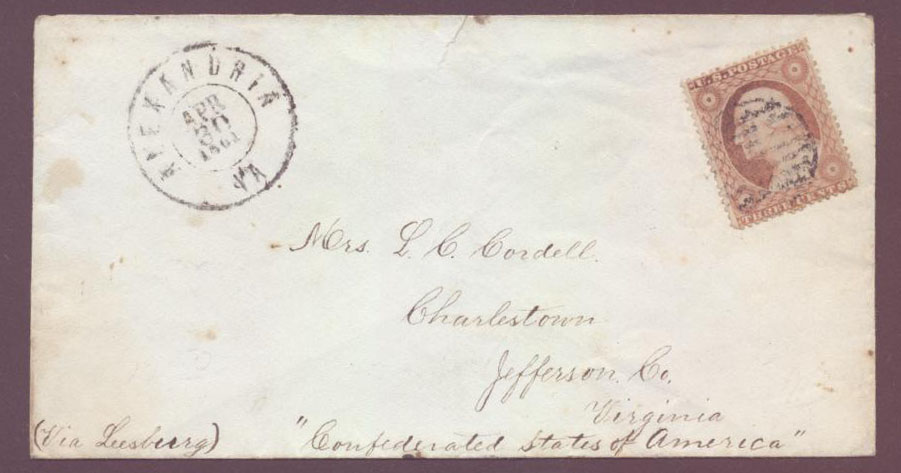 ALEXANDRIA
APR
30
1861
VA
U.S. POSTAGE
THREE CENTS
Mrs. L. C. Cordell.
Charlestown
Jefferson Co.
Virginia
(Via Leesburg) "Confederated States of America"